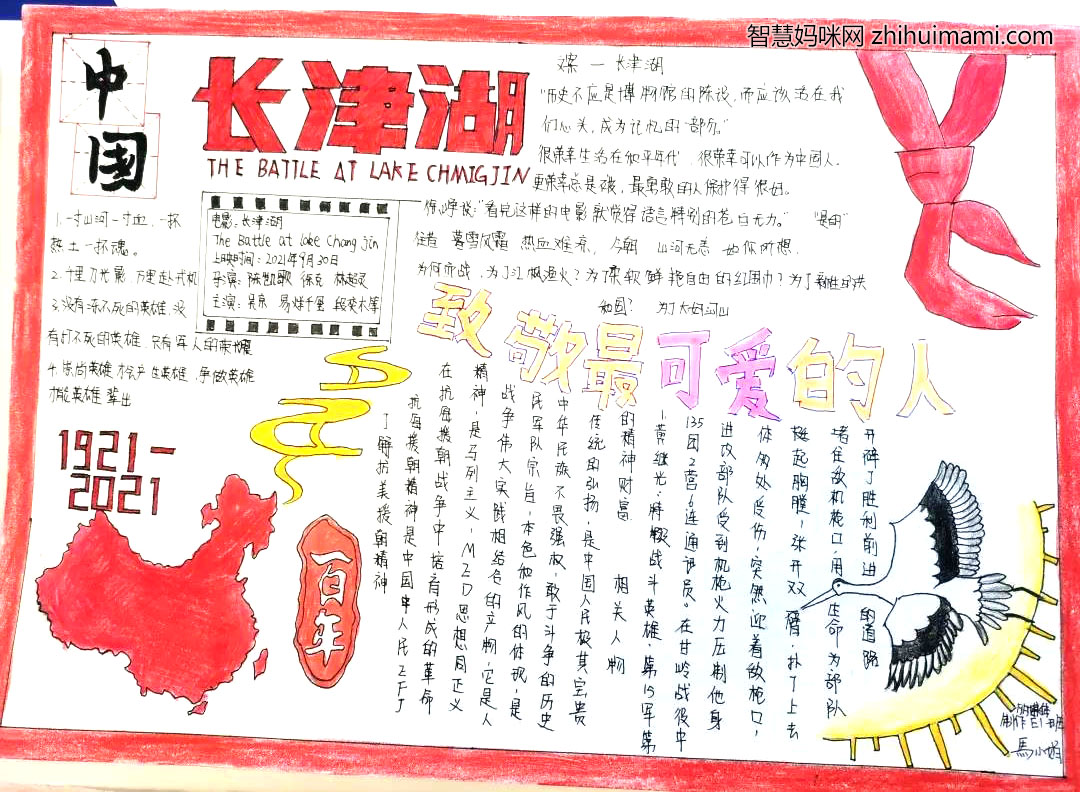 智慧妈咪网 zhihuimami.com
中国
长津湖
THE BATTLE AT LAKE CHMIGJIN
文案一长津湖
"历史不应是博物馆的陈设,而应该活在我
们心头,成为记忆的一部分。"
很荣幸生活在和平年代,很荣幸可以作为中国人.
更荣幸总是被,最勇敢的人保护得很好。
"看完这样的电影就觉得语言特别的苍白无力。"
暮雪风霜 热血难凉, 今朝 山河无恙 如你所想.
为何而战,为了江枫渔火?为了柔软鲜艳自由的红围巾?为了
为了大好河山
电影:长津湖
The Battle at lake Chang jin
上映时间:2021年9月30日
导演:陈凯歌 徐克 林超贤
主演:吴京 易烊千玺 段奕木等
1.一寸山河一寸血,一抔
热土一抔魂。
2.十里刀光影,万里赴戎机
3.没有冻不死的英雄,没
有打不死的英雄,只有军人的荣耀
4.崇尚英雄才会产生英雄,争做英雄
才能英雄辈出
致敬最可爱的人
1921-
2021
一百年
了解抗美援朝精神
抗美援朝精神是中国中人民ZFJ
在抗美援朝战争中培育形成的革命
精神,是马列主义,MZD思想同正义
战争伟大实践相结合的产物,它是人
民军队宗旨,本色和作风的体现,是
中华民族不畏强权,敢于斗争的历史
传统的弘扬,是中国人民极其宝贵
的精神财富 相关人物
1.黄继光:特级战斗英雄,第15军第
135团2营6连通讯员。在甘岭战役中
进攻部队受到机枪火力压制他身
体多处受伤,突然迎着敌枪口,
挺起胸膛,张开双臂,扑了上去
堵住敌机枪口,用生命为部队
开辟了胜利前进的道路